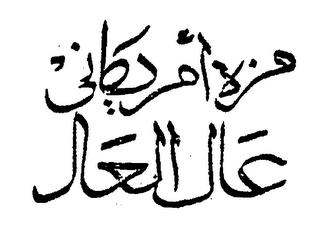 مزة أمريكانى
عال العال